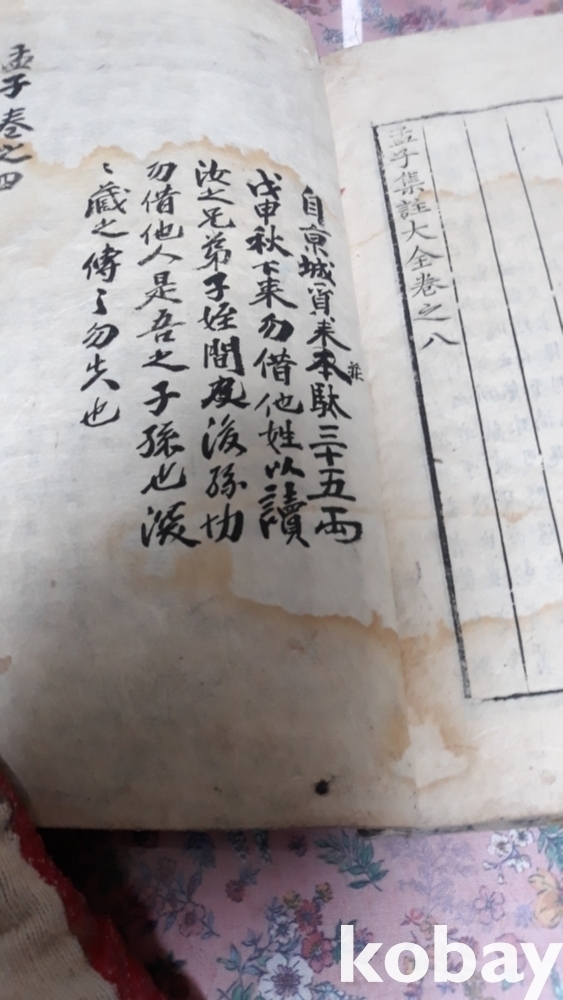 孟子集註大全卷之八
自京城貿来本駄三十五両
戊申秋下来勿借他姓以讀
汝之兄弟子姪間度後孫切
勿借他人是吾之子孫也深
〻藏之傳〻勿失也
孟子卷之四
kobay